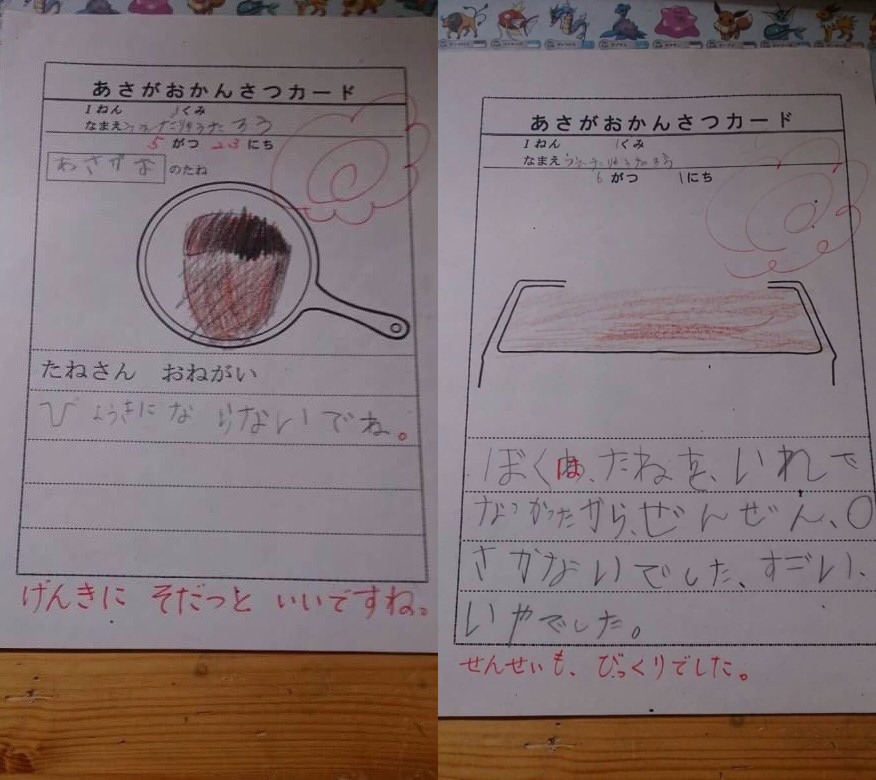 あさがおかんさつカード
1ねん 1くみ
なまえ
5がつ23にち
あさがお のたね
たねさん おねがい
びょうきにならないでね。
げんきに そだつと いいですね。
あさがおかんさつカード
1ねん 1くみ
なまえ
6がつ 1にち
ぼくは、たねを、いれて
なかったから、ぜんぜん、
さかないでした、すごい、
いやでした。
せんせいも、びっくりでした。